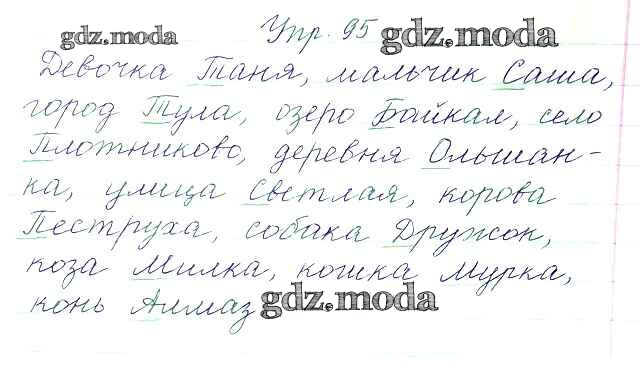 gdz.moda Упр. 95 gdz.moda
Девочка Таня, мальчик Саша,
город Тула, озеро Байкал, село
Плотниково, деревня Ольшан-
ка, улица Светлая, корова
Пеструха, собака Дружок,
коза Милка, кошка Мурка,
конь Алмаз gdz.moda